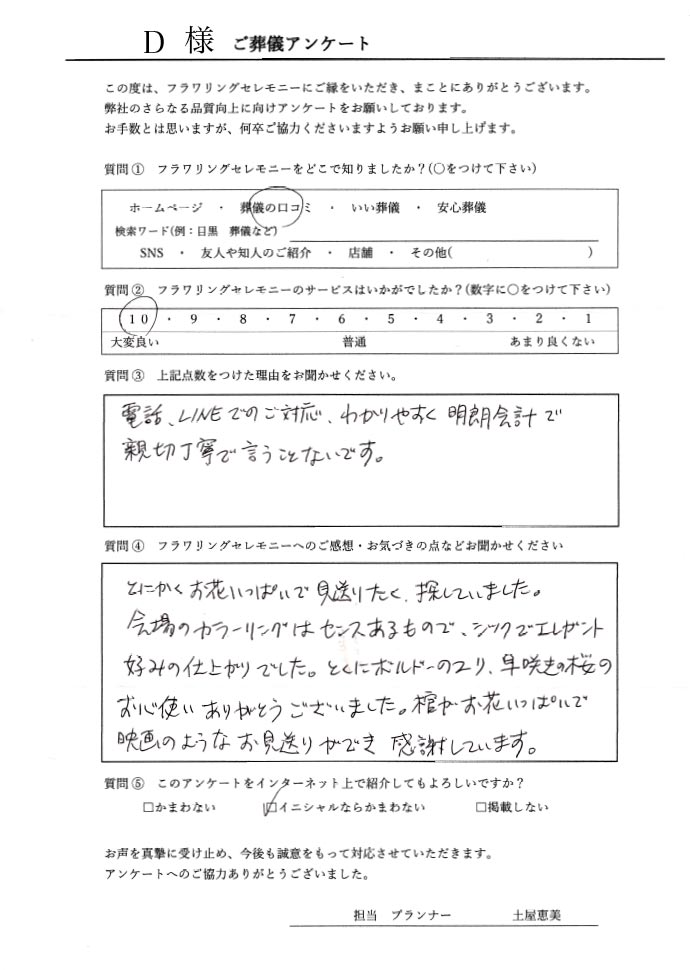 D 様 ご葬儀アンケート
この度は、フラワリングセレモニーにご縁をいただき、まことにありがとうございます。
弊社のさらなる品質向上に向けアンケートをお願いしております。
お手数とは思いますが、何卒ご協力くださいますようお願い申し上げます。
質問① フラワリングセレモニーをどこで知りましたか？(○をつけて下さい)
ホームページ ・ 葬儀の口コミ ・ いい葬儀 ・ 安心葬儀
検索ワード(例：目黒 葬儀など)
SNS ・ 友人や知人のご紹介 ・ 店舗 ・ その他( )
質問② フラワリングセレモニーのサービスはいかがでしたか？(数字に○をつけて下さい)
10 ・ 9 ・ 8 ・ 7 ・ 6 ・ 5 ・ 4 ・ 3 ・ 2 ・ 1
大変良い 普通 あまり良くない
質問③ 上記点数をつけた理由をお聞かせください。
電話、LINEでのご対応、わかりやすく明朗会計で
親切丁寧で言うことないです。
質問④ フラワリングセレモニーへのご感想・お気づきの点などお聞かせください
とにかくお花いっぱいで見送りたく、探していました。
会場のカラーリングはセンスあるもので、シックでエレガント
好みの仕上がりでした。とくにボルドーのユリ、早咲きの桜の
お心使いありがとうございました。棺がお花いっぱいで
映画のようなお見送りができ感謝しています。
質問⑤ このアンケートをインターネット上で紹介してもよろしいですか？
□かまわない □イニシャルならかまわない □掲載しない
お声を真摯に受け止め、今後も誠意をもって対応させていただきます。
アンケートへのご協力ありがとうございました。
担当 プランナー 土屋恵美